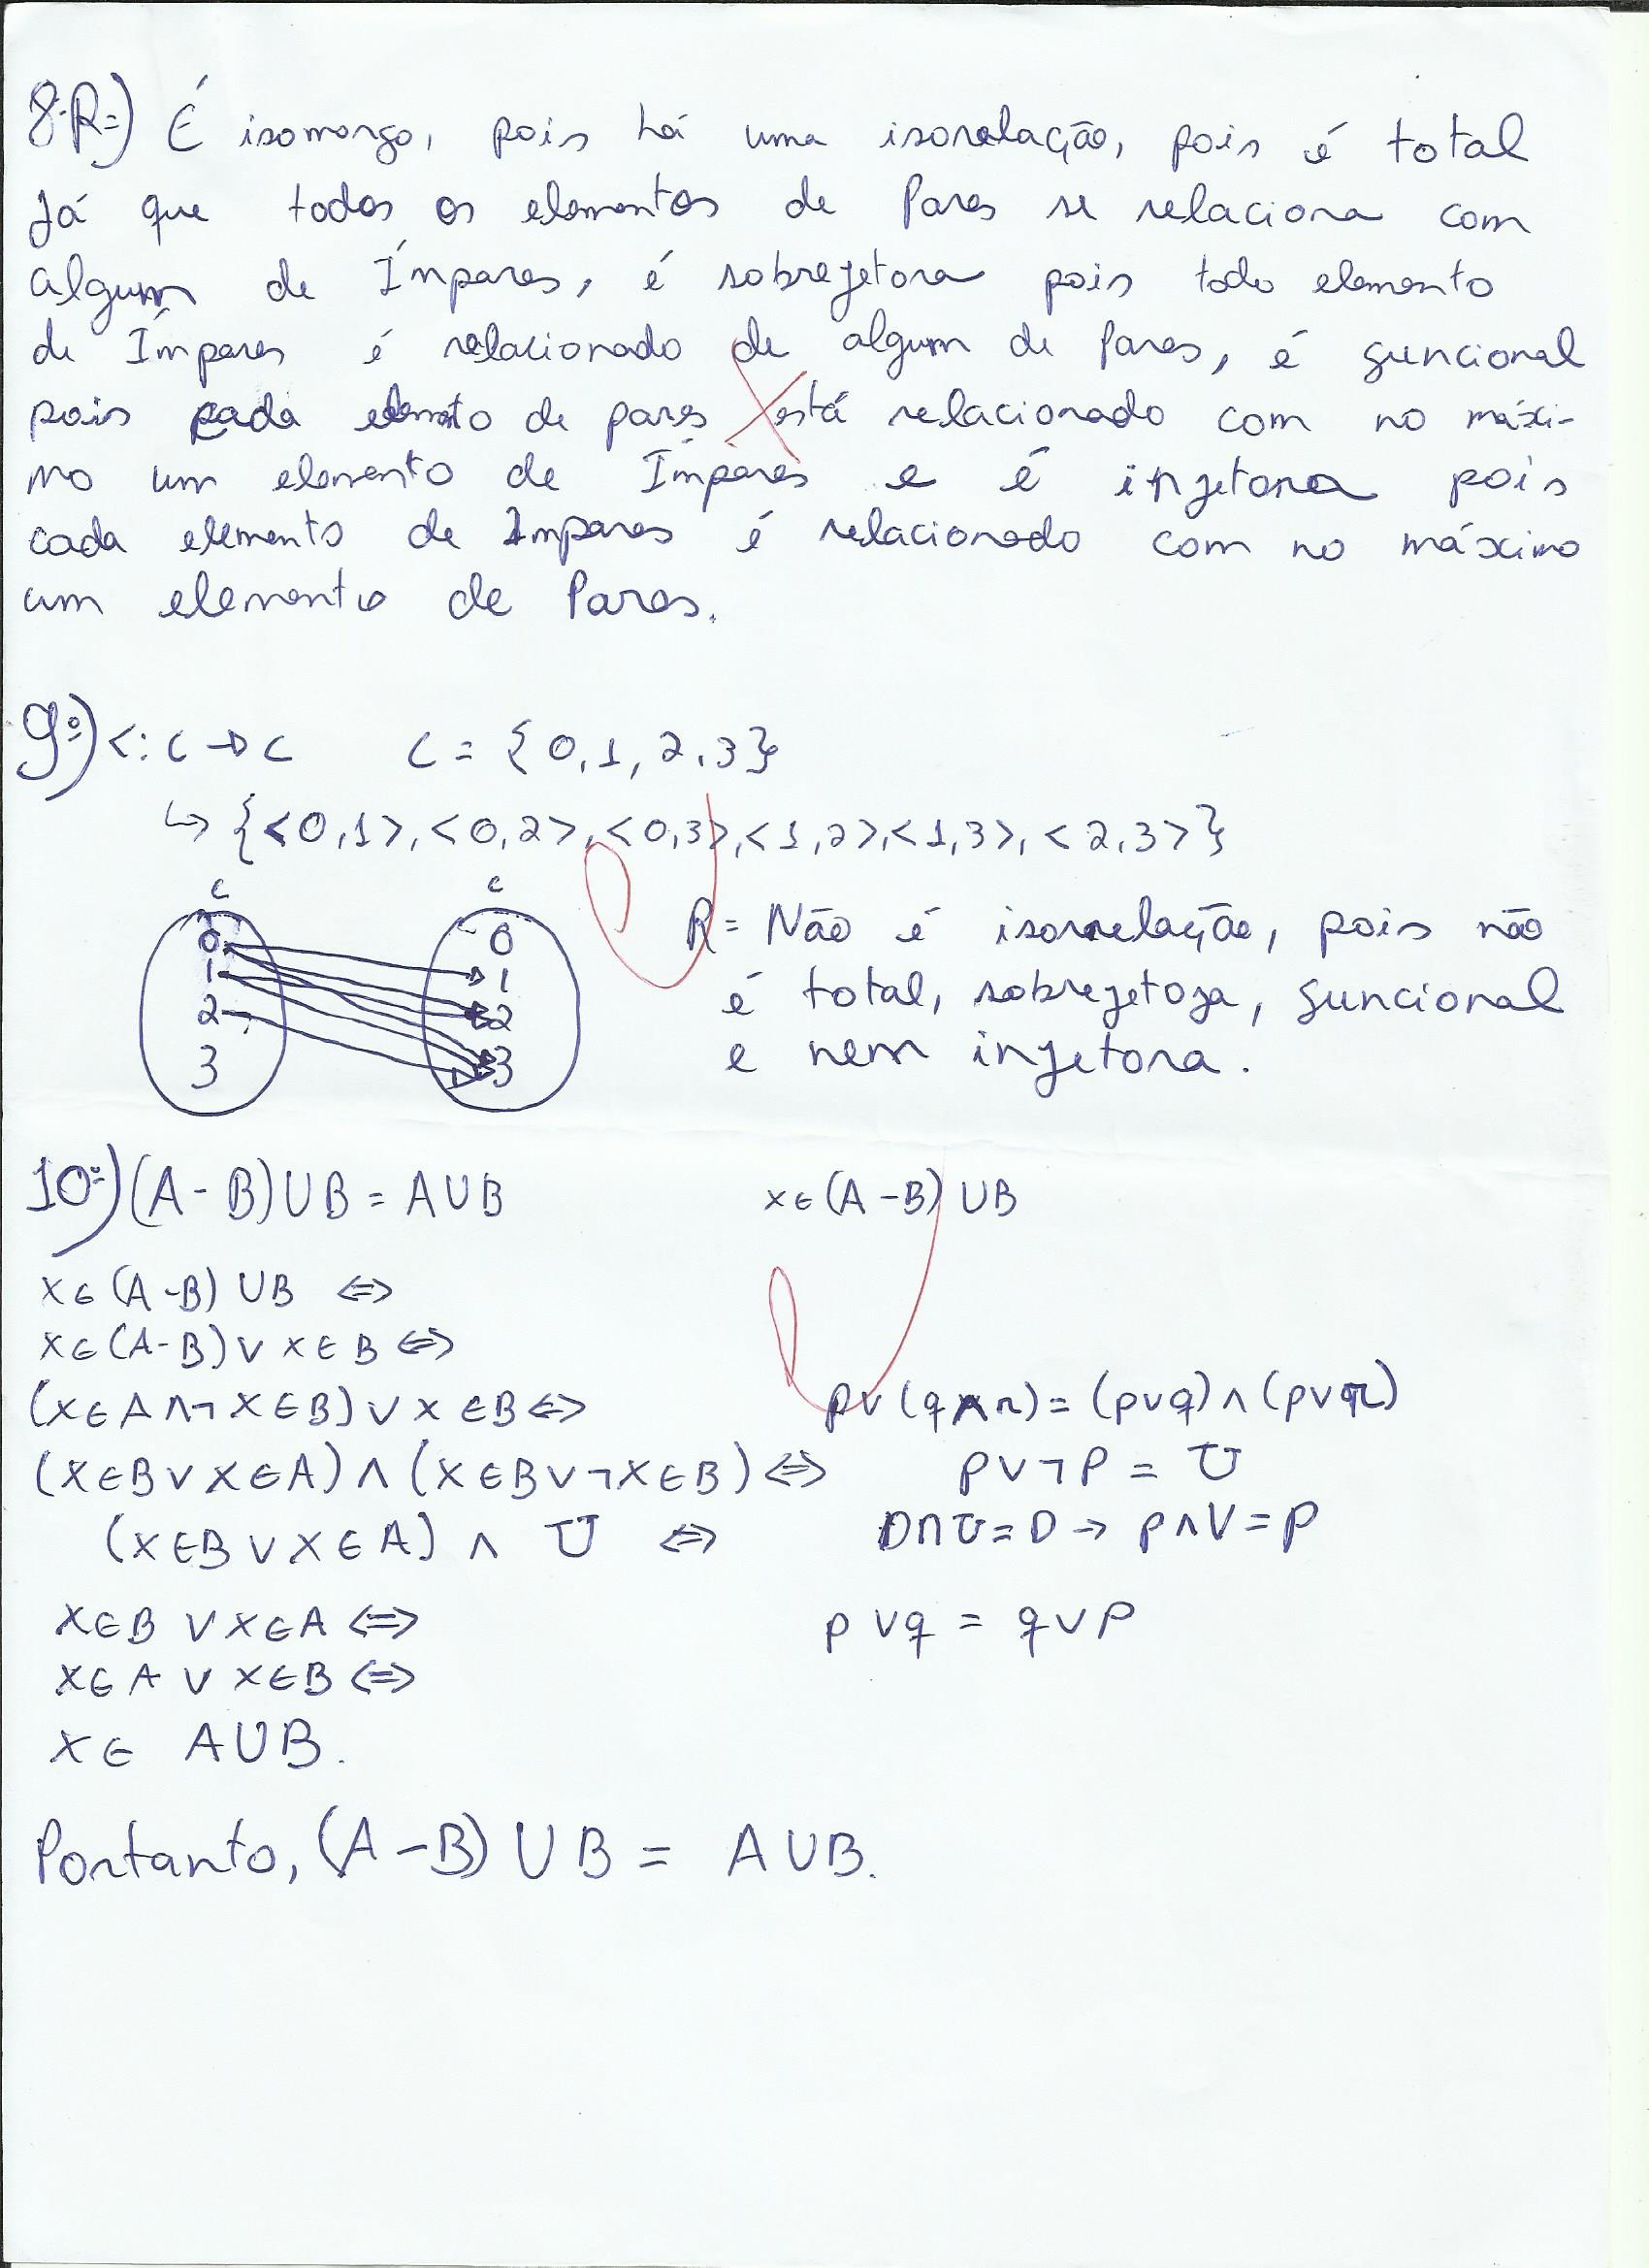 8-R=) É isomorfo, pois há uma isorelação, pois é total
Já que todos os elementos de Pares se relaciona com
algum de Ímpares, é sobrejetora pois todo elemento
de Ímpares é relacionado de algum de Pares, é funcional
pois cada elemento de pares está relacionado com no máxi-
mo um elemento de Ímpares e é injetora pois
cada elemento de Impares é relacionado com no máximo
um elemento de Pares.
9º) <: C → C C = {0,1,2,3}
↳ {<0,1>,<0,2>,<0,3>,<1,2>,<1,3>,<2,3>}
C C
0 0
1 1
2 2
3 3
R= Não é isorrelação, pois não
é total, sobrejetora, funcional
e nem injetora.
10º) (A - B) U B = A U B x ∈ (A - B) U B
x ∈ (A - B) U B ⇔
x ∈ (A - B) ∨ x ∈ B ⇔
(x ∈ A ∧ ¬ x ∈ B) ∨ x ∈ B ⇔ p ∨ (q ∧ r) = (p ∨ q) ∧ (p ∨ r)
(x ∈ B ∨ x ∈ A) ∧ (x ∈ B ∨ ¬ x ∈ B) ⇔ p ∨ ¬ p = U
(x ∈ B ∨ x ∈ A) ∧ U ⇔ D ∩ U = D → p ∧ V = p
x ∈ B ∨ x ∈ A ⇔ p ∨ q = q ∨ p
x ∈ A ∨ x ∈ B ⇔
x ∈ A U B.
Portanto, (A - B) U B = A U B.